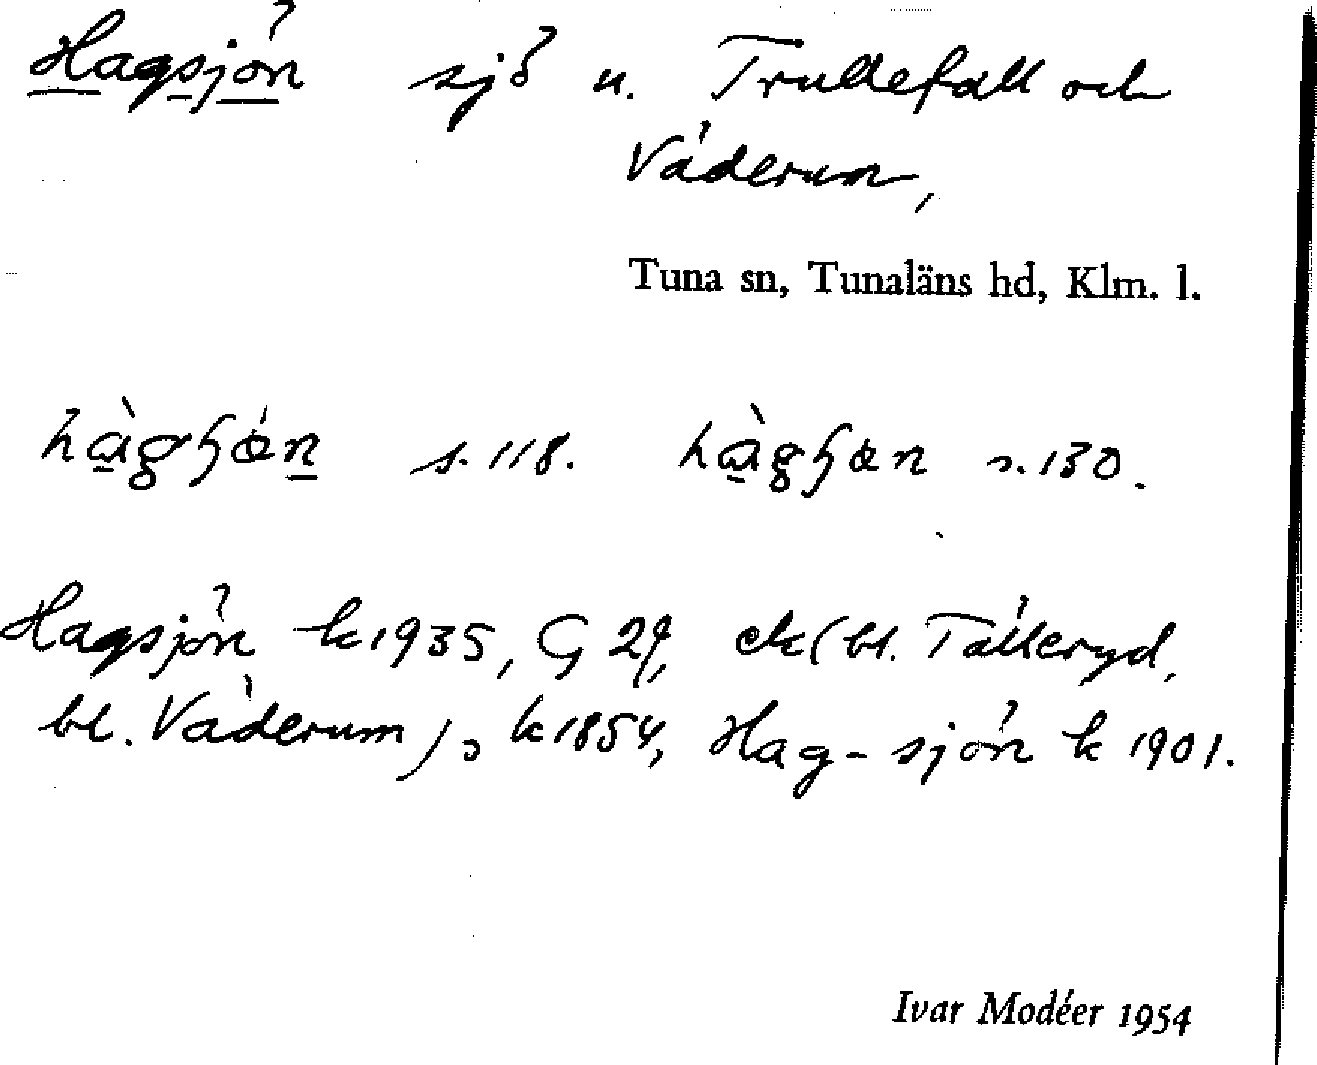 Hagsjön sjö u. Trullefall och
Väderum,
Tuna sn, Tunaläns hd, Klm. l.
s. 118. s. 130.
Hagsjön k 1935, G 29, ek (bl. Tälleryd,
bl. Väderum), k 1854, Hag-sjön k 1901.
Ivar Modéer 1954